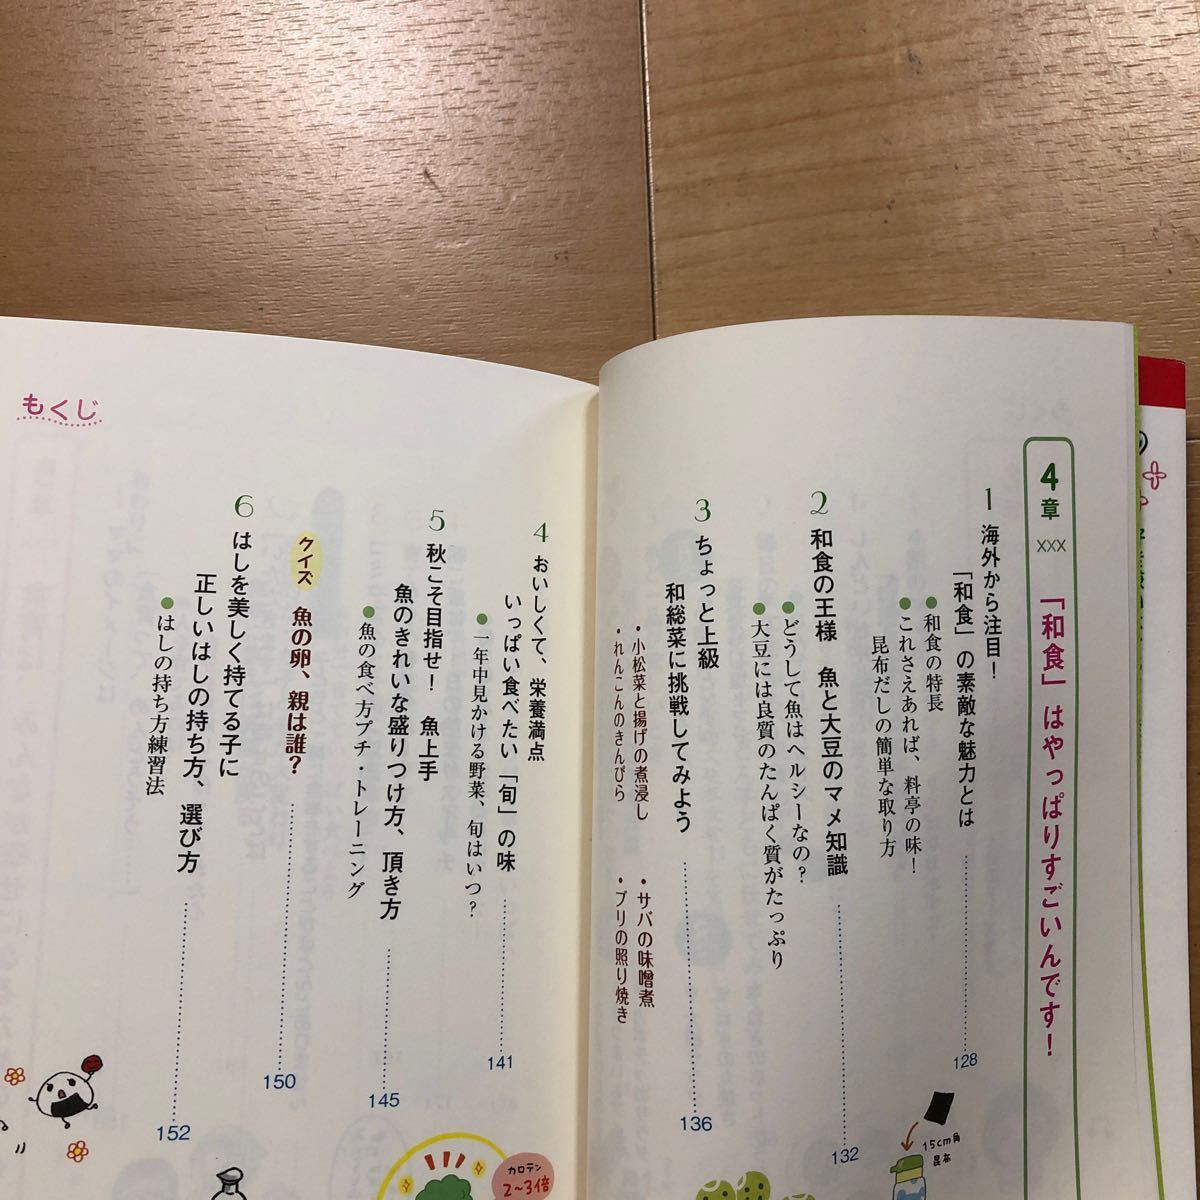 4章 xxx 「和食」はやっぱりすごいんです！
1 海外から注目！
「和食」の素敵な魅力とは
128
●和食の特長
●これさえあれば、料亭の味！
昆布だしの簡単な取り方
2 和食の王様 魚と大豆のマメ知識
132
●どうして魚はヘルシーなの？
●大豆には良質のたんぱく質がたっぷり
3 ちょっと上級
和総菜に挑戦してみよう
136
・小松菜と揚げの煮浸し
・サバの味噌煮
・れんこんのきんぴら
・ブリの照り焼き
15cm角
昆布
4 おいしくて、栄養満点
いっぱい食べたい「旬」の味
141
●一年中見かける野菜、旬はいつ？
5 秋こそ目指せ！ 魚上手
魚のきれいな盛りつけ方、頂き方
145
●魚の食べ方プチ・トレーニング
クイズ 魚の卵、親は誰？
150
6 はしを美しく持てる子に
正しいはしの持ち方、選び方
152
●はしの持ち方練習法
もくじ
カロテン
2〜3倍